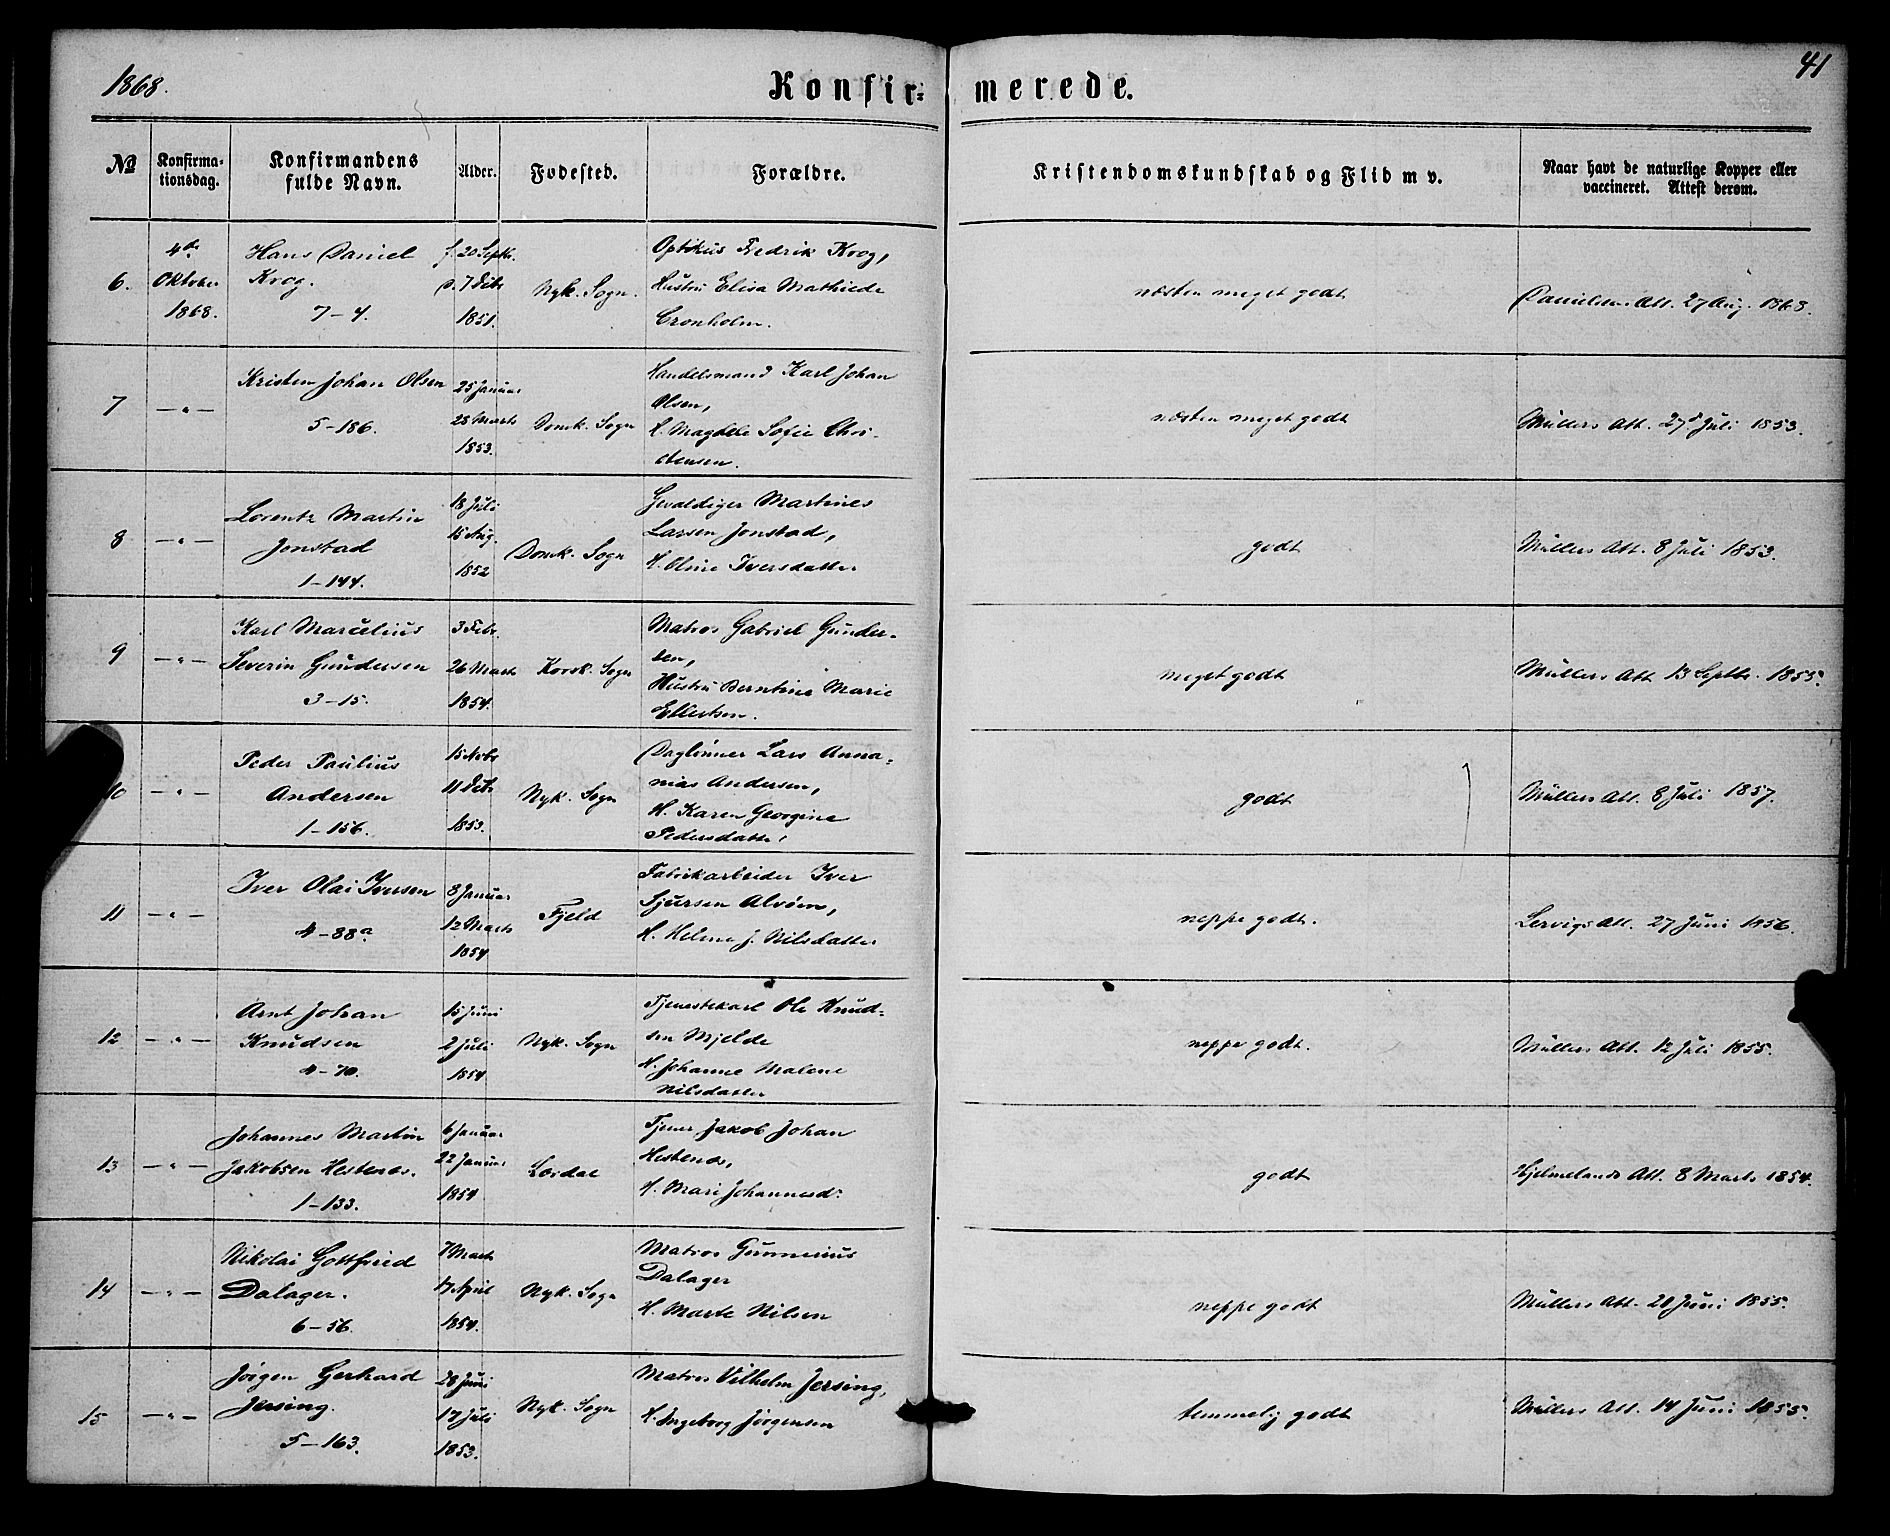 1868.
41
Konfir=
merede.
№
Konfirma-
tionsdag.
Konfirmandens
fulde Navn.
Alder.
Fødested.
Forældre.
Kristendomskundskab og Flid m v.
Naar havt de naturlige Kopper eller
vaccineret. Attest derom.
6.
4de
Oktober
1868.
Hans Daniel
Krog.
7-4.
f. 20 Septbr.
d. 7 Debr
1851.
Nyk. Sogn.
Optikus Fredrik Krog,
Hustru Elisa Mathilde
Cronholm.
næsten meget godt
Danielsens Att. 27 Aug. 1868.
7
-"-
Kristen Johan Olsen
5-186.
25 Januar
28 Marts
1853.
Domk. Sogn
Handelsmand Karl Johan
Olsen,
H. Magdele Sofie Chri-
stensen.
næsten meget godt
Müllers Att. 27d Juli 1853.
8
-"-
Lorentz Martin
Jonstad
1-144.
18 Juli
15 Aug.
1852
Domk. Sogn
Gevaldiger Martines
Larsen Jonstad,
H. Oline Iversdatter
godt
Müllers Att. 8 Juli 1853.
9
-"-
Karl Marcelius
Severin Gundersen
3-15.
3 Febr.
26 Marts
1854.
Korsk. Sogn
Matros Gabriel Gunder-
sen,
Hustru Berntine Marie
Ellertsen.
meget godt
Müllers Att 13 Septbr. 1855.
10
-"-
Peder Paulius
Andersen
1-156.
15 Novbr
11 Debr
1853.
Nyk. Sogn
Daglønner Lars Anna-
nias Andersen,
H. Karen Georgine
Pedersdatter
godt
Müllers Att. 8 Juli 1857.
11
-"-
Iver Olai Iversen
4-88a
8 Januar
12 Marts
1854
Fjeld
Fabrikarbeider Iver
Sjursen Alvøen,
H. Helene J. Nilsdatter
neppe godt.
Lervigs Att. 27 Juni 1856.
12
-"-
Arnt Johan
Knudsen
4-70.
15 Juni
2 Juli
1854
Nyk. Sogn
Tjenestekarl Ole Knud-
sen Mjelde
H. Johanne Malene
Nilsdatter
neppe godt.
Müllers Att. 12 Juli 1855.
13
-"-
Johannes Martin
Jakobsen Hestenæs.
1-133.
6 Januar
22 Januar
1854
Lærdal
Tjener Jakob Johan
Hestenæs,
H. Mari Johannesd.
godt
Hjelmelands Att. 8 Marts 1854.
14
-"-
Nikolai Gottfried
Dalager.
6-56.
7 Marts
17 April
1854.
Nyk. Sogn
Matros Gunnerius
Dalager
H. Marte Nilsen
neppe godt
Müllers Att. 20 Juni 1855.
15
-"-
Jörgen Gerhard
Jersing.
5-163.
28 Juni
17 Juli
1853.
Nyk. Sogn
Matros Vilhelm Jersing,
H. Ingeborg Jörgensen
temmelig godt
Müllers Att. 14 Juni 1855.